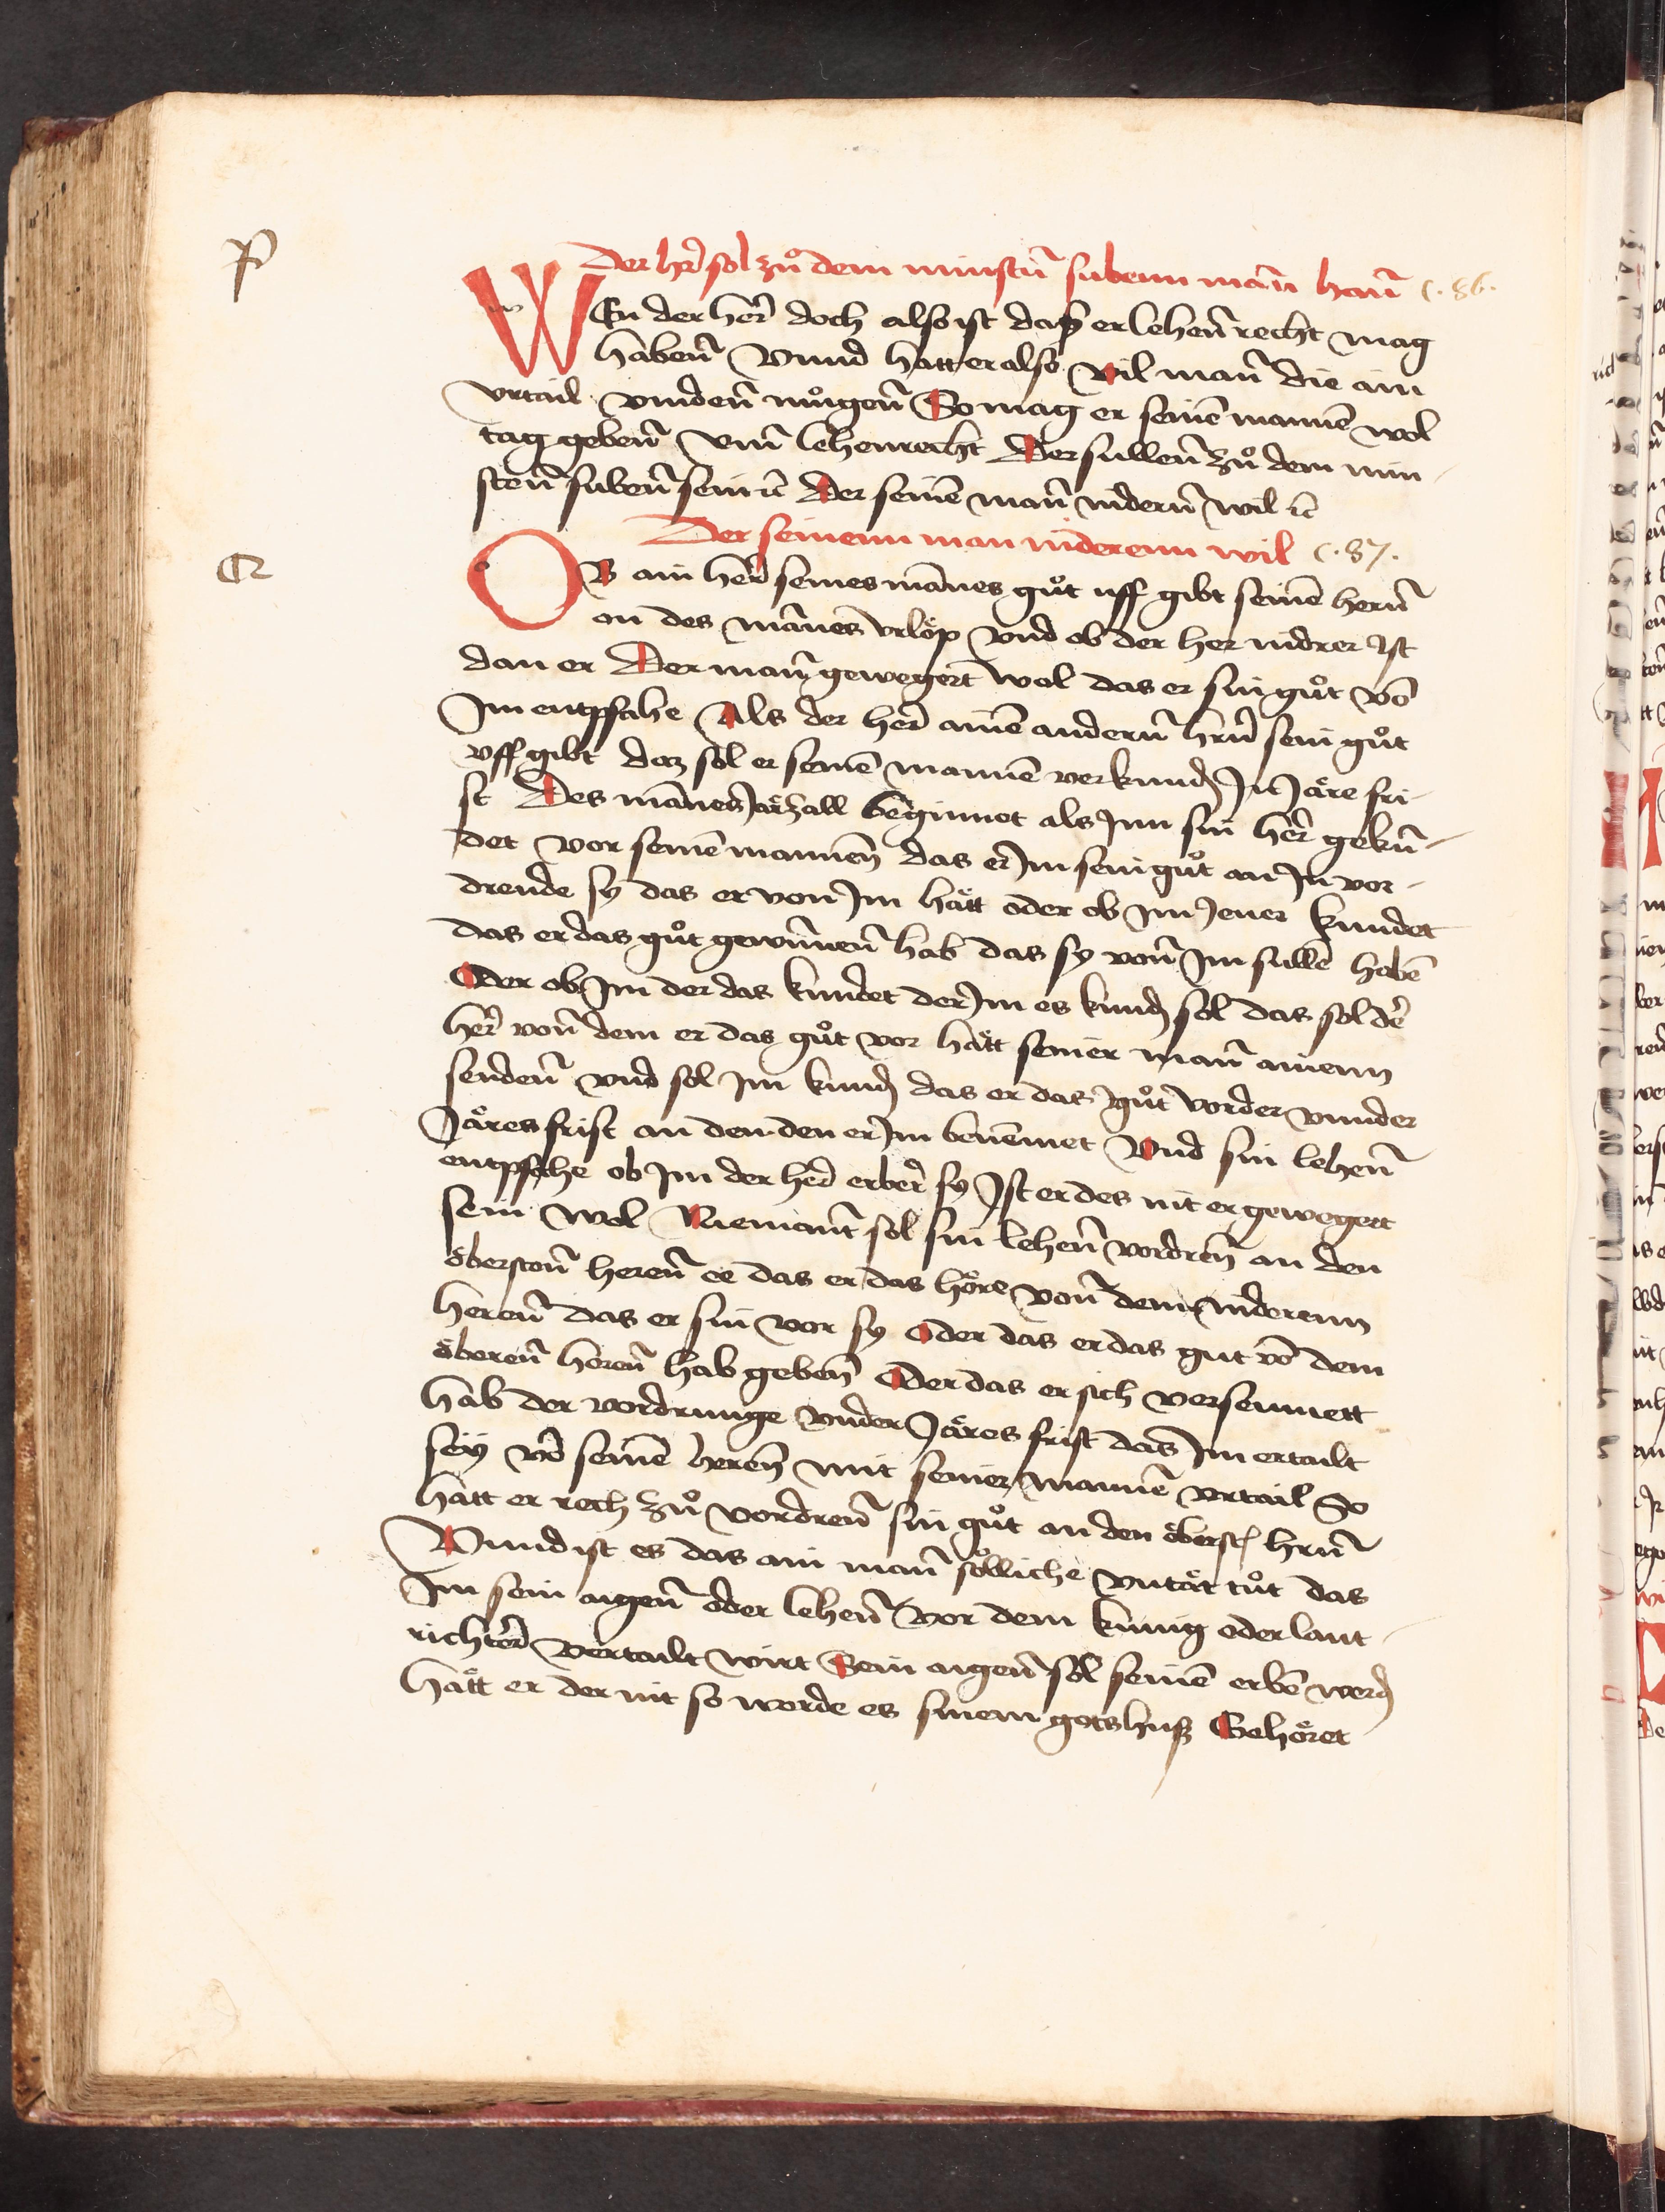 Der hr̄ sol zů dem minstn̄ subenn man̄ han̄ c. 86.
WEn der her̄ doch also ist das er lehen̄ recht mag
haben̄ Vnnd hatt er also vil man̄ die ain
vrtail vinden̄ můgen̄ So mag er seinē mannē wol
tag geben̄ vm̄ lehenrecht Der sullen̄ zů dem min
sten̄ suben̄ sein ꝛc̄ Der seinē man̄ nidern̄ wil ꝛc̄
Der seinenn man niderenn wil c. 87.
OB ain her̄ seines mānes gůt uff gibt seinē hern̄
on des mānes vrlöp vnd ob der her nidrer ist
dan er Der man̄ gewegert wol das er sin gůt vō
Im entpfahe Als der her̄ ainē andern̄ hrn̄ sein gůt
vff gibt daz sol er seinē mannē verkunden In Järe fri
st Des mānes Jarzall beginnet als Jnn sin her̄ gekū
det vor seinē mannen̄ das er Im sein gůt an In vor
drende sy das er von Im hätt oder ob im Jener kundet
das er das gůt gewun̄en̄ hab das sy von̄ Im sullē habē
Oder ob Im der das kundet der Im es kunden sol das sol dē
her̄ von̄ dem er das gůt vor hätt seiner man̄ ainenn
senden̄ vnd sol im kunden das er das gůt vorder vnnder
Järes frist an den den er Im benennet Vnd sin lehen̄
entpfahe ob Im der her̄ erber̄ sy Ist er des nit er gewegert
sein wol Niemant̄ sol sin lehen̄ vordren̄ an den
öbersten̄ heren̄ ee das er das höre von̄ dem niderenn
heren̄ das er sin vor sy Oder das er das gut vō dem
öberen̄ heren̄ hab geben̄ Oder das er sich verseumett
hab der vordrunge vnder Järes frist das Im ertailt
seÿ vō seinē heren̄ mit seiner mannē vrtail So
hätt er rech zů vordren̄ sin gůt an den öbersten hrn̄
Vnnd ist es das ain man̄ sölliche vntät tůt das
Im sein aigen̄ oder lehen̄ vor dem kunig oder lant
richter̄ vertailt wirt Sein aigen̄ sol seinē erbē werden
Hätt er der nit so werde es sinem gotshuß Gehöret